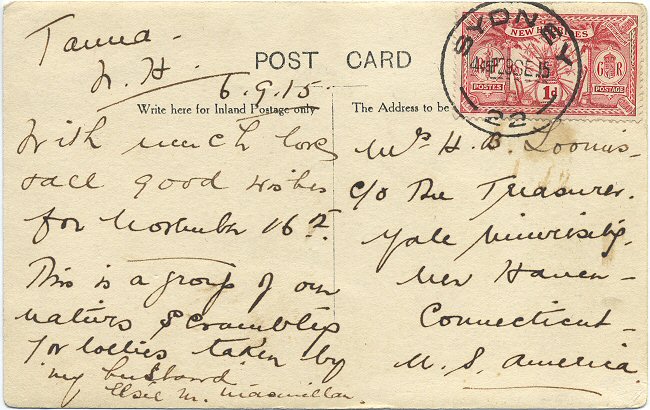 Tanna -
N. H.
6.9.15.
POST CARD
SYDNEY
28 SE 15
22
B
NEW HEBRIDES
G R
POSTES
1d
POSTAGE
Write here for Inland Postage only
The Address to be
With much love
& all good wishes
for November 16th.
This is a group of our
natives scrambling
for lollies taken by
my husband
Elsie M. Macmillan.
Mrs H. B. Loomis -
c/o The Treasurer.
Yale University,
New Haven -
Connecticut -
U. S. America.